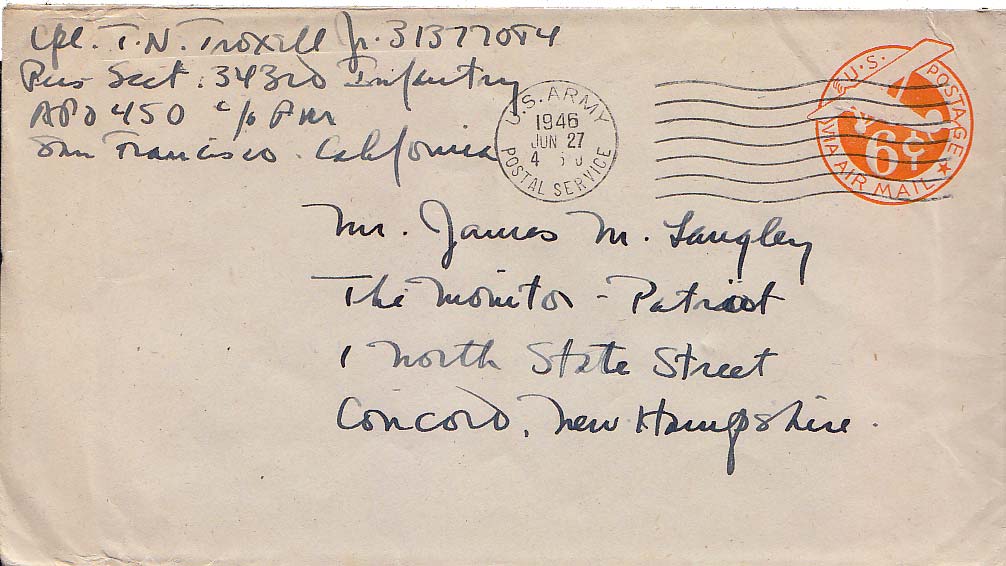 Cpl. T. N. Troxell Jr. 31377084
Sect. 343rd Infantry
APO 450 c/o P.M.
San Francisco. California
U.S. ARMY
1946
JUN 27
4
POSTAL SERVICE
U.S. POSTAGE
6¢
VIA AIR MAIL
Mr. James M. Langley
The Monitor - Patriot
1 North State Street
Concord, New Hampshire.